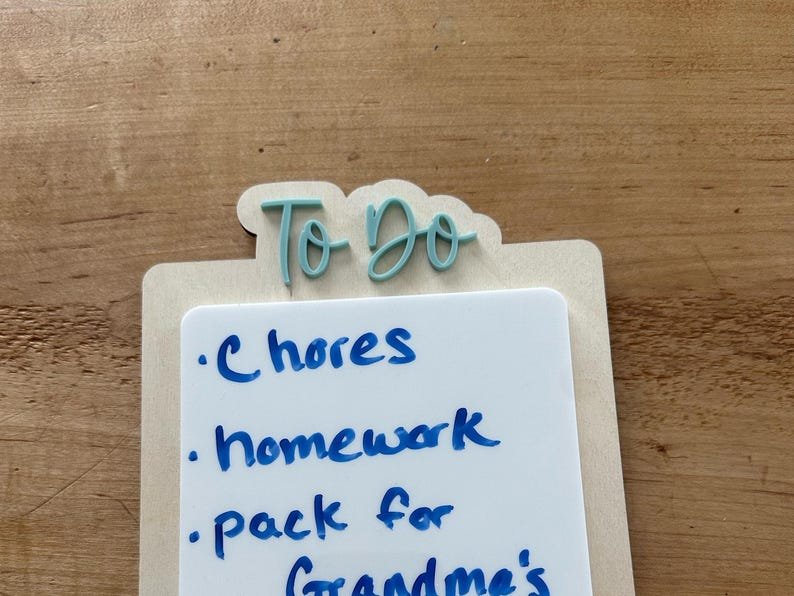 To Do
· Chores
· homework
· pack for
Grandma's